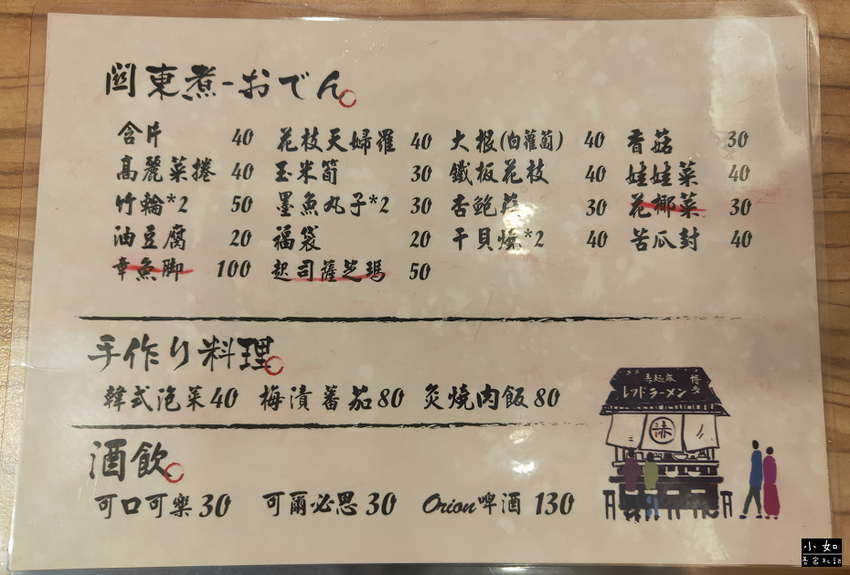 關東煮-おでん
含片 40 花枝天婦羅 40 大根(白蘿蔔) 40 香菇 30
高麗菜捲 40 玉米筍 30 鐵板花枝 40 娃娃菜 40
竹輪*2 50 墨魚丸子*2 30 杏鮑菇 30 花椰菜 30
油豆腐 20 福袋 20 干貝燒*2 40 苦瓜封 40
章魚脚 100 起司薩芝瑪 50
手作り料理
韓式泡菜40 梅漬蕃茄80 炙燒肉飯80
酒飲
可口可樂30 可爾必思30 Orion啤酒 130
レフドラーメン
博多
小如